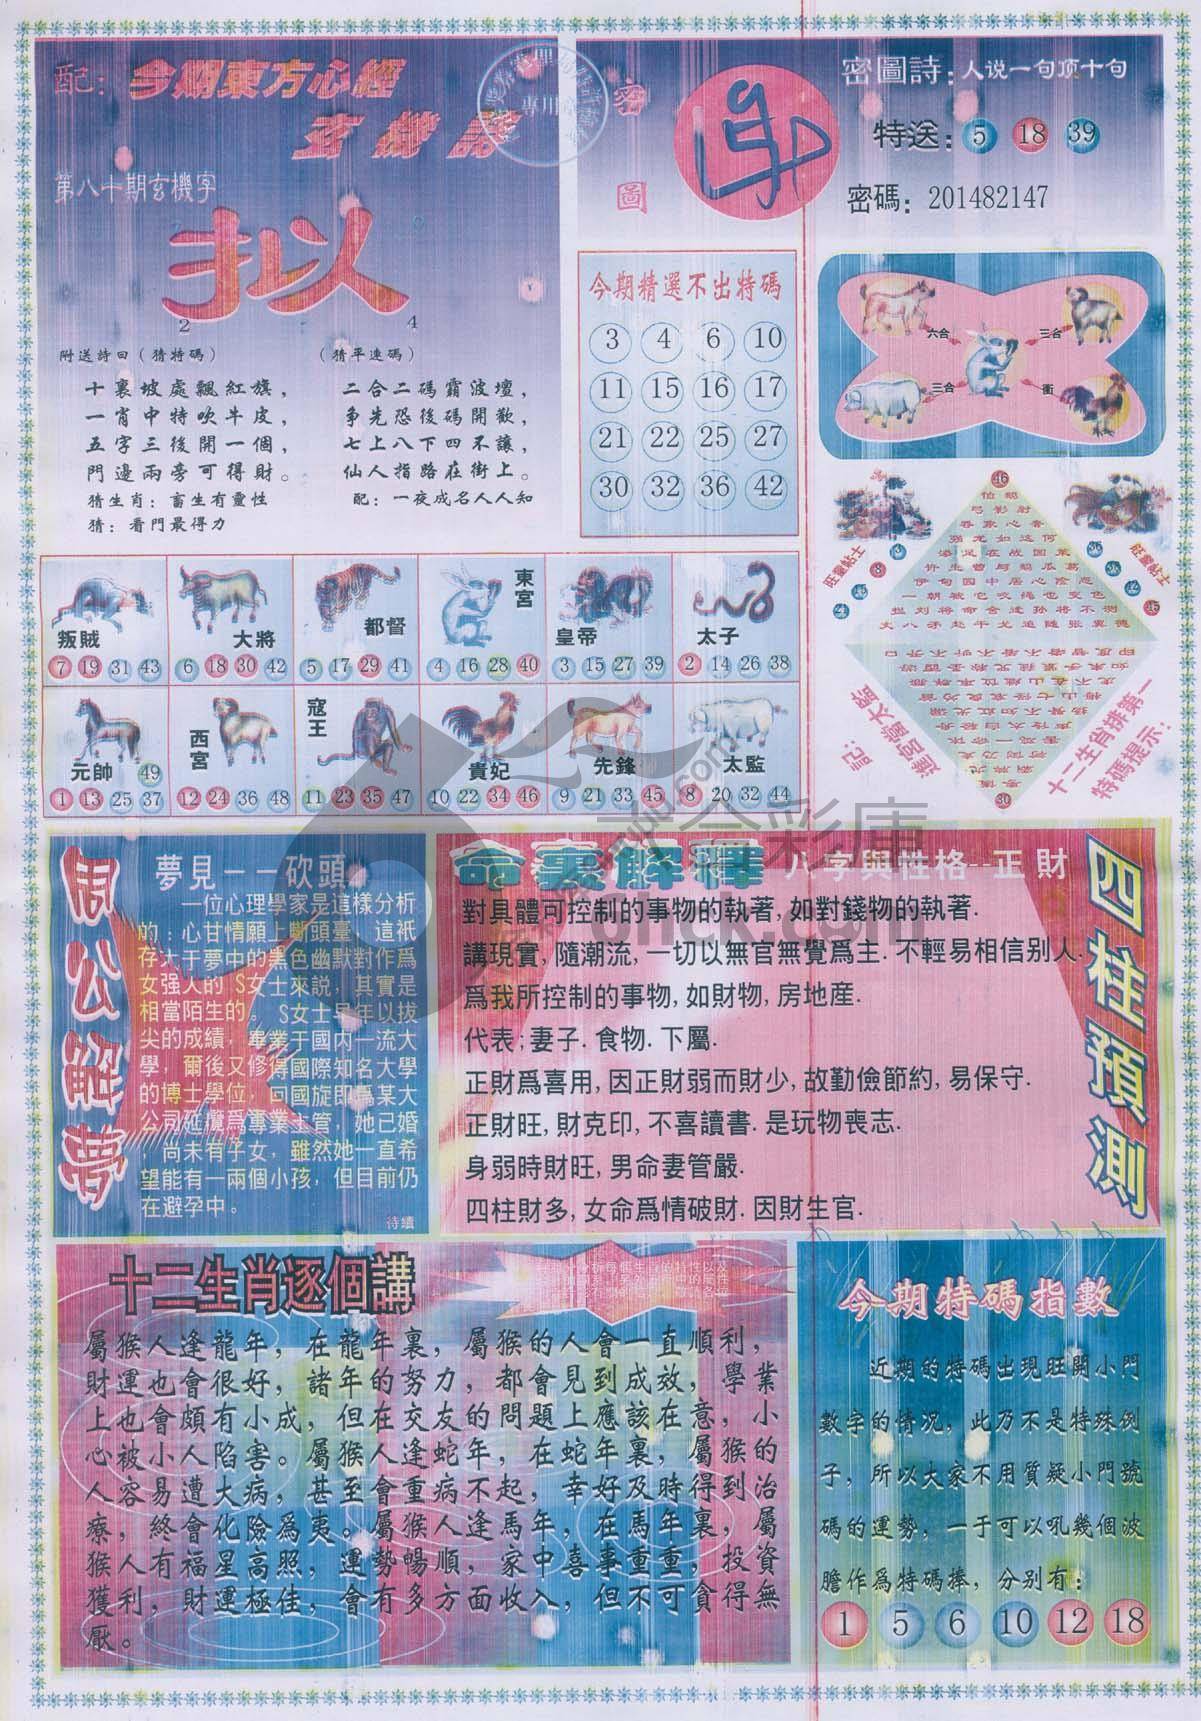 配：今期東方心經
玄機詩
第八十期玄機字
拟
2
4
附送詩曰（猜特碼）
十裏坡處飄紅旗，
一肖中特吹牛皮，
五字三後開一個，
門邊兩旁可得財。
猜生肖：畜生有靈性
猜：看門最得力
（猜平連碼）
二合二碼霸波壇，
争先恐後碼開歡，
七上八下四不讓，
仙人指路在街上。
配：一夜成名人人知
密
圖
密圖詩：人说一句顶十句
特送：5 18 39
密碼：201482147
今期精選不出特碼
3 4 6 10
11 15 16 17
21 22 25 27
30 32 36 42
六合
三合
三合
衝
46
旺量帖士
旺量帖士
弓影射
一朝被它咬绳也变色
配：
進宮當太監
十二生肖排第一
特碼提示：
30
叛賊
7 19 31 43
大將
6 18 30 42
都督
5 17 29 41
東宮
4 16 28 40
皇帝
3 15 27 39
太子
2 14 26 38
元帥
49
1 13 25 37
西宮
12 24 36 48
寇王
11 23 35 47
貴妃
10 22 34 46
先鋒
9 21 33 45
太監
8 20 32 44
周公解夢
夢見－－砍頭
一位心理學家是這樣分析
的：心甘情願上斷頭臺，這衹
存大于夢中的黑色幽默對作爲
女强人的 S女士來説，其實是
相當陌生的。 S女士早年以拔
尖的成績，畢業于國内一流大
學，爾後又修得國際知名大學
的博士學位，回國旋即爲某大
公司延欖爲專業主管，她已婚
尚未有子女，雖然她一直希
望能有一兩個小孩，但目前仍
在避孕中。
待續
命裏解釋 八字與性格--正財
對具體可控制的事物的執著, 如對錢物的執著.
講現實, 隨潮流, 一切以無官無覺爲主. 不輕易相信别人.
爲我所控制的事物, 如財物, 房地産.
代表; 妻子. 食物. 下屬.
正財爲喜用, 因正財弱而財少, 故勤儉節約, 易保守.
正財旺, 財克印, 不喜讀書. 是玩物喪志.
身弱時財旺, 男命妻管嚴.
四柱財多, 女命爲情破財. 因財生官.
四柱預測
十二生肖逐個講
屬猴人逢龍年，在龍年裏，屬猴的人會一直順利，
財運也會很好，諸年的努力，都會見到成效，學業
上也會頗有小成，但在交友的問題上應該在意，小
心被小人陷害。屬猴人逢蛇年，在蛇年裏，屬猴的
人容易遭大病，甚至會重病不起，幸好及時得到治
療，終會化險爲夷。屬猴人逢馬年，在馬年裏，屬
猴人有福星高照，運勢暢順，家中喜事重重，投資
獲利，財運極佳，會有多方面收入，但不可貪得無
厭。
今期特碼指數
近期的特碼出現旺開小門
數字的情況，此乃不是特殊例
子，所以大家不用質疑小門號
碼的運勢，一于可以吼幾個波
膽作爲特碼捧，分别有：
1 5 6 10 12 18